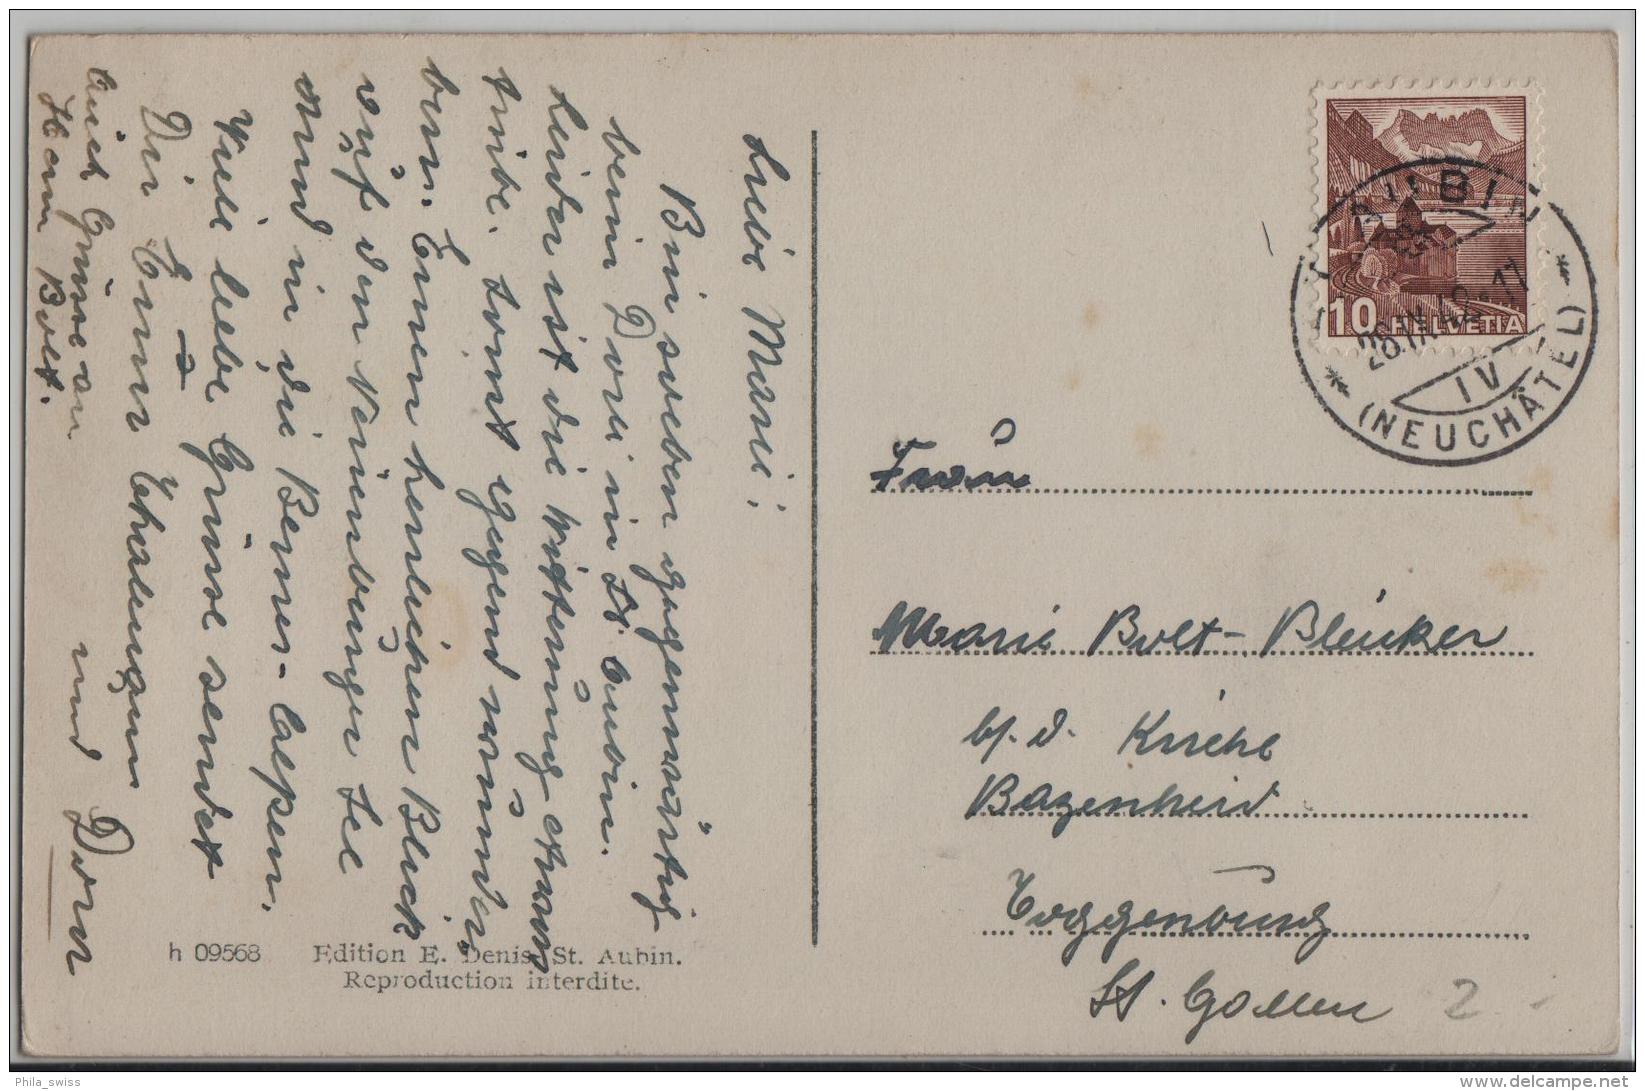 Liebe Marie!
Bin soeben gegenwärtig
beim Dori in St. Aubin.
Leider ist die Witterung etwas
trübe. Sonst eine Gegend wunder
bar. Einen herrlichen Blick
auf den Neuenburger See
und in die Berner-Alpen.
Viele liebe Grüsse sendet
Dir Emma
und Dora
Auch Grüsse an
Herrn Bolt.
h 09568 Edition E. Denis, St. Aubin.
Reproduction interdite.
10 HELVETIA
AUBIN
26.IX.42-17
IV
(NEUCHÂTEL)
Frau
Marie Bolt-Bleiker
b/ d. Kirche
Bazenheid
Toggenburg
St. Gallen
2.-
Phila_swiss
delcampe.net